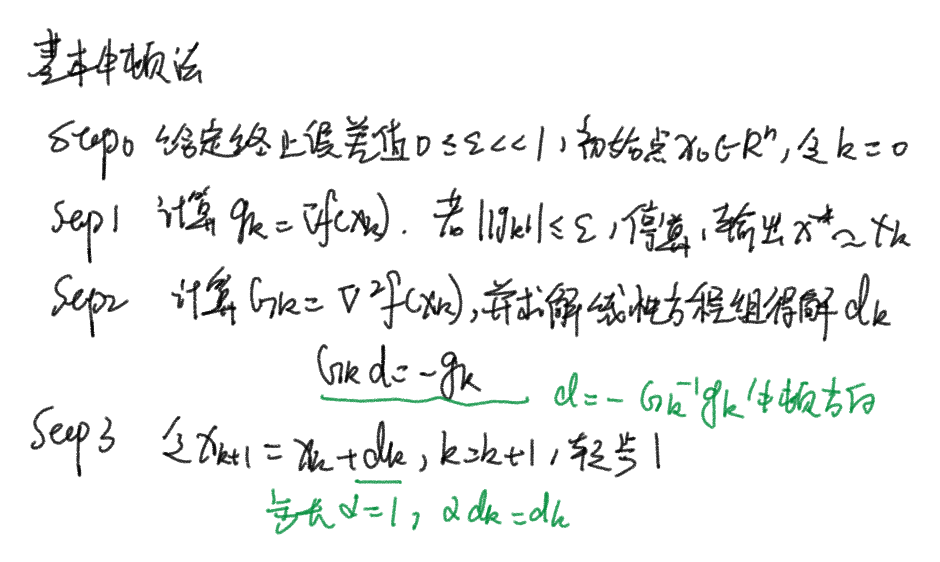 基本牛顿法
Step0 给定终止误差值 0≤ε<<1, 初始点 x₀∈Rⁿ, 令 k=0
Step1 计算 gₖ=∇f(xₖ). 若 ||gₖ||≤ε, 停算, 输出 x*≈xₖ
Step2 计算 Gₖ=∇²f(xₖ), 并求解线性方程组得解 dₖ
Gₖd=-gₖ
d=-Gₖ⁻¹gₖ 牛顿方向
Step3 令 xₖ₊₁=xₖ+dₖ, k=k+1, 转步1
步长 α=1, αdₖ=dₖ